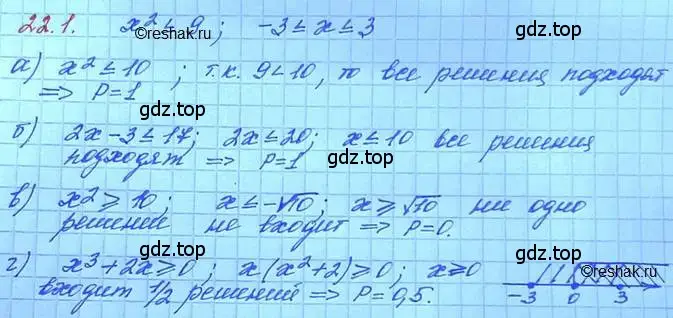 22.1. x² ≤ 9; -3 ≤ x ≤ 3
©reshak.ru
gdz.top
gdz.top
а) x² ≤ 10 ; т.к. 9 < 10, то все решения подходят
=> P=1
gdz.top
gdz.top
б) 2x - 3 ≤ 17; 2x ≤ 20; x ≤ 10 все решения
подходят => P=1
gdz.top
gdz.top
в) x² ≥ 10; x ≤ -√10; x ≥ √10 ни одно
решений не входит => P=0.
gdz.top
gdz.top
г) x³ + 2x ≥ 0; x(x² + 2) ≥ 0; x ≥ 0
©reshak.ru
входит 1/2 решений => P = 0,5.
-3 0 3
gdz.top
gdz.top